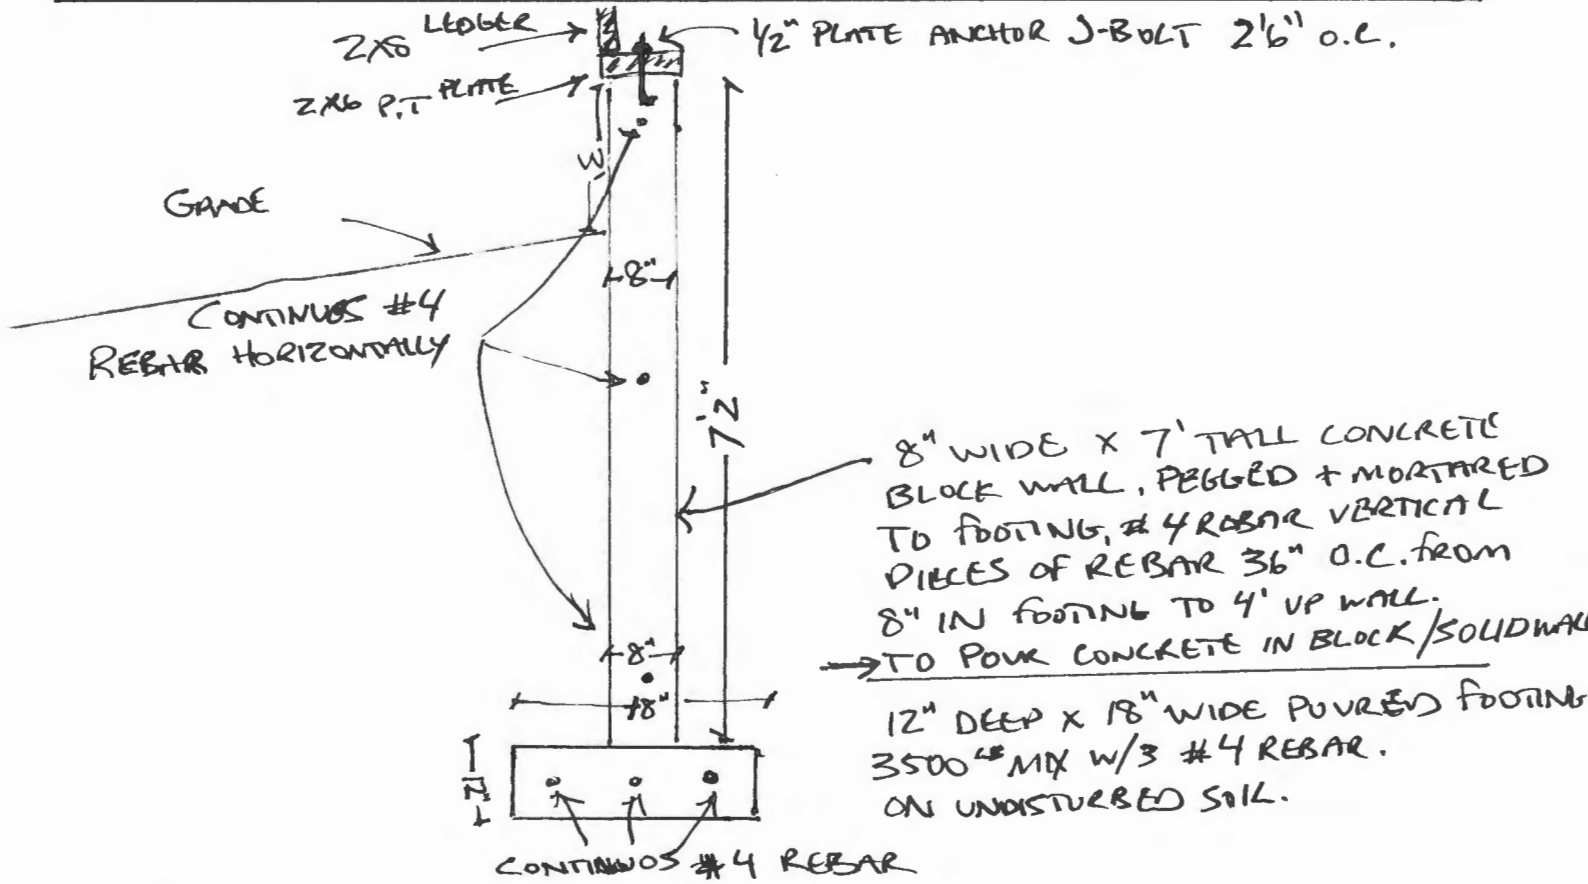 2X8 LEDGER
1/2" PLATE ANCHOR J-BOLT 2'6" O.C.
2X6 P.T PLATE
GRADE
8"
CONTINUOS #4
REBAR HORIZONTALLY
7'2"
8" WIDE X 7' TALL CONCRETE
BLOCK WALL, PEGGED + MORTARED
TO FOOTING, #4 REBAR VERTICAL
PIECES OF REBAR 36" O.C. FROM
8" IN FOOTING TO 4' UP WALL.
TO POUR CONCRETE IN BLOCK/SOLID WALL
8"
18"
12" DEEP X 18" WIDE POURED FOOTING
3500 LB MIX W/3 #4 REBAR.
ON UNDISTURBED SOIL.
12"
CONTINUOS #4 REBAR